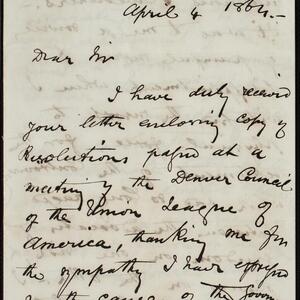 April 4 1864.-
Dear Sir
I have duly received
your letter enclosing copy of
Resolutions passed at a
meeting of the Denver Council
of the Union League of
America, thanking me for
the sympathy I have expressed
in the cause of the